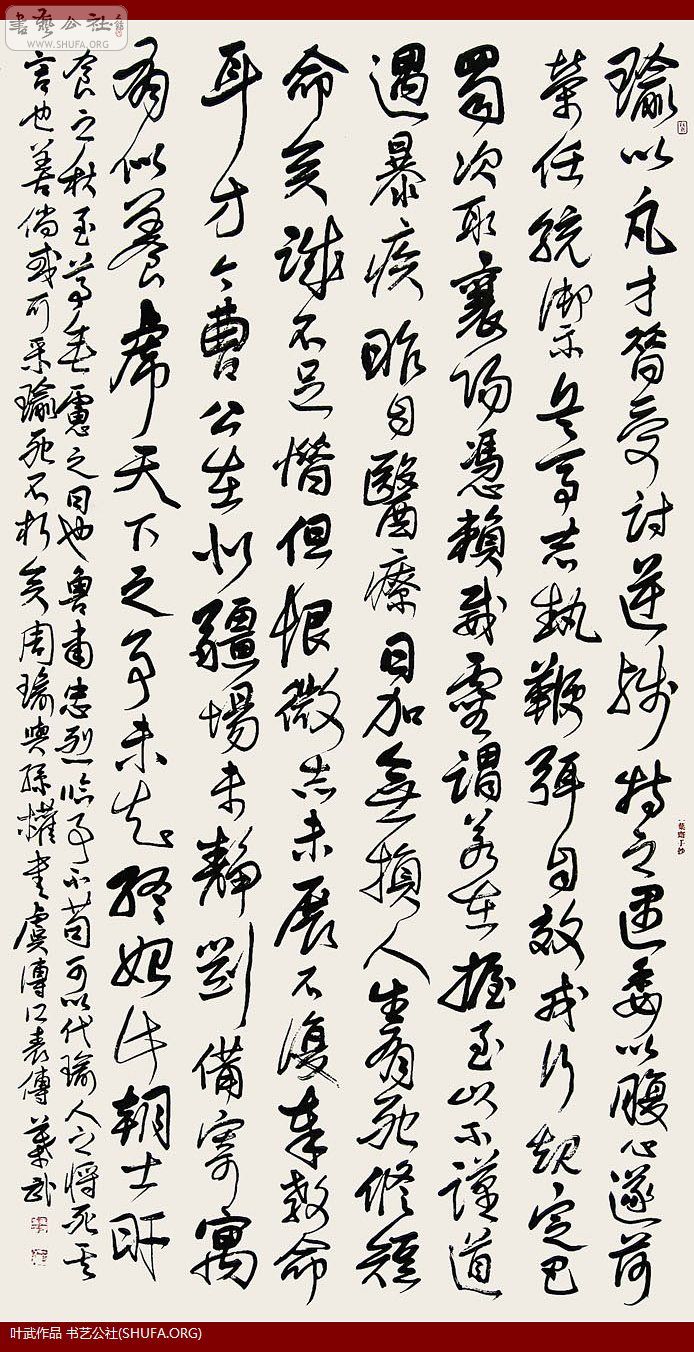 書藝公社
WWW.SHUFA.ORG
瑜以凡才昔受討逆殊特之遇委以腹心遂荷
榮任統御兵馬志執鞭弭自效戎行規定巴
蜀次取襄陽憑賴威靈謂若在握至以不謹道
遇暴疾昨自醫療日加無損人生有死修短
命矣誠不足惜但恨微志未展不復奉教命
耳方今曹公在北疆場未靜劉備寄寓
有似養虎天下之事未知終始此朝士旰
食之秋至尊垂慮之日也魯肅忠烈臨事不苟可以代瑜人之將死其
言也善倘或可采瑜死不朽矣周瑜與孫權書虞溥江表傳 葉武
叶武作品 书艺公社(SHUFA.ORG)